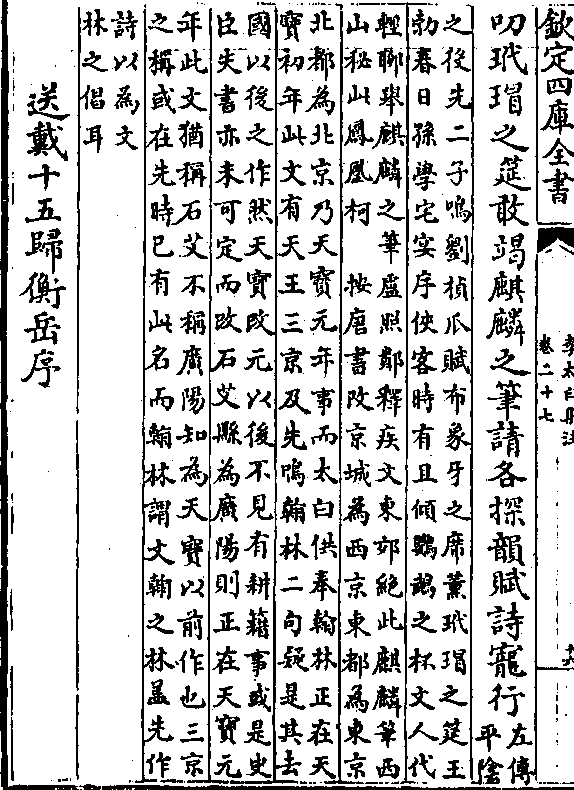 欽定四庫全書
李太白集注
卷二十七
叨玳瑁之筵敢竭麒麟之筆請各探韻賦詩寵行
左傳
平陰
之役先二子鳴劉楨瓜賦布象牙之席薰玳瑁之筵王
勃春日孫學宅宴序俠客時有且傾鸚鵡之杯文人代
輕聊舉麒麟之筆盧照鄰釋疾文東郊絕此麒麟筆西
山秘此鳳凰柯 按唐書改京城為西京東都為東京
北都為北京乃天寶元年事而太白供奉翰林正在天
寶初年此文有天王三京及先鳴翰林二句疑是其去
國以後之作然天寶改元以後不見有耕籍事或是史
臣失書亦未可定而改石艾縣為廣陽則正在天寶元
年此文猶稱石艾不稱廣陽知為天寶以前作也三京
之稱或在先時已有此名而翰林謂文翰之林盖先作
詩以為文
林之倡耳
送戴十五歸衡岳序